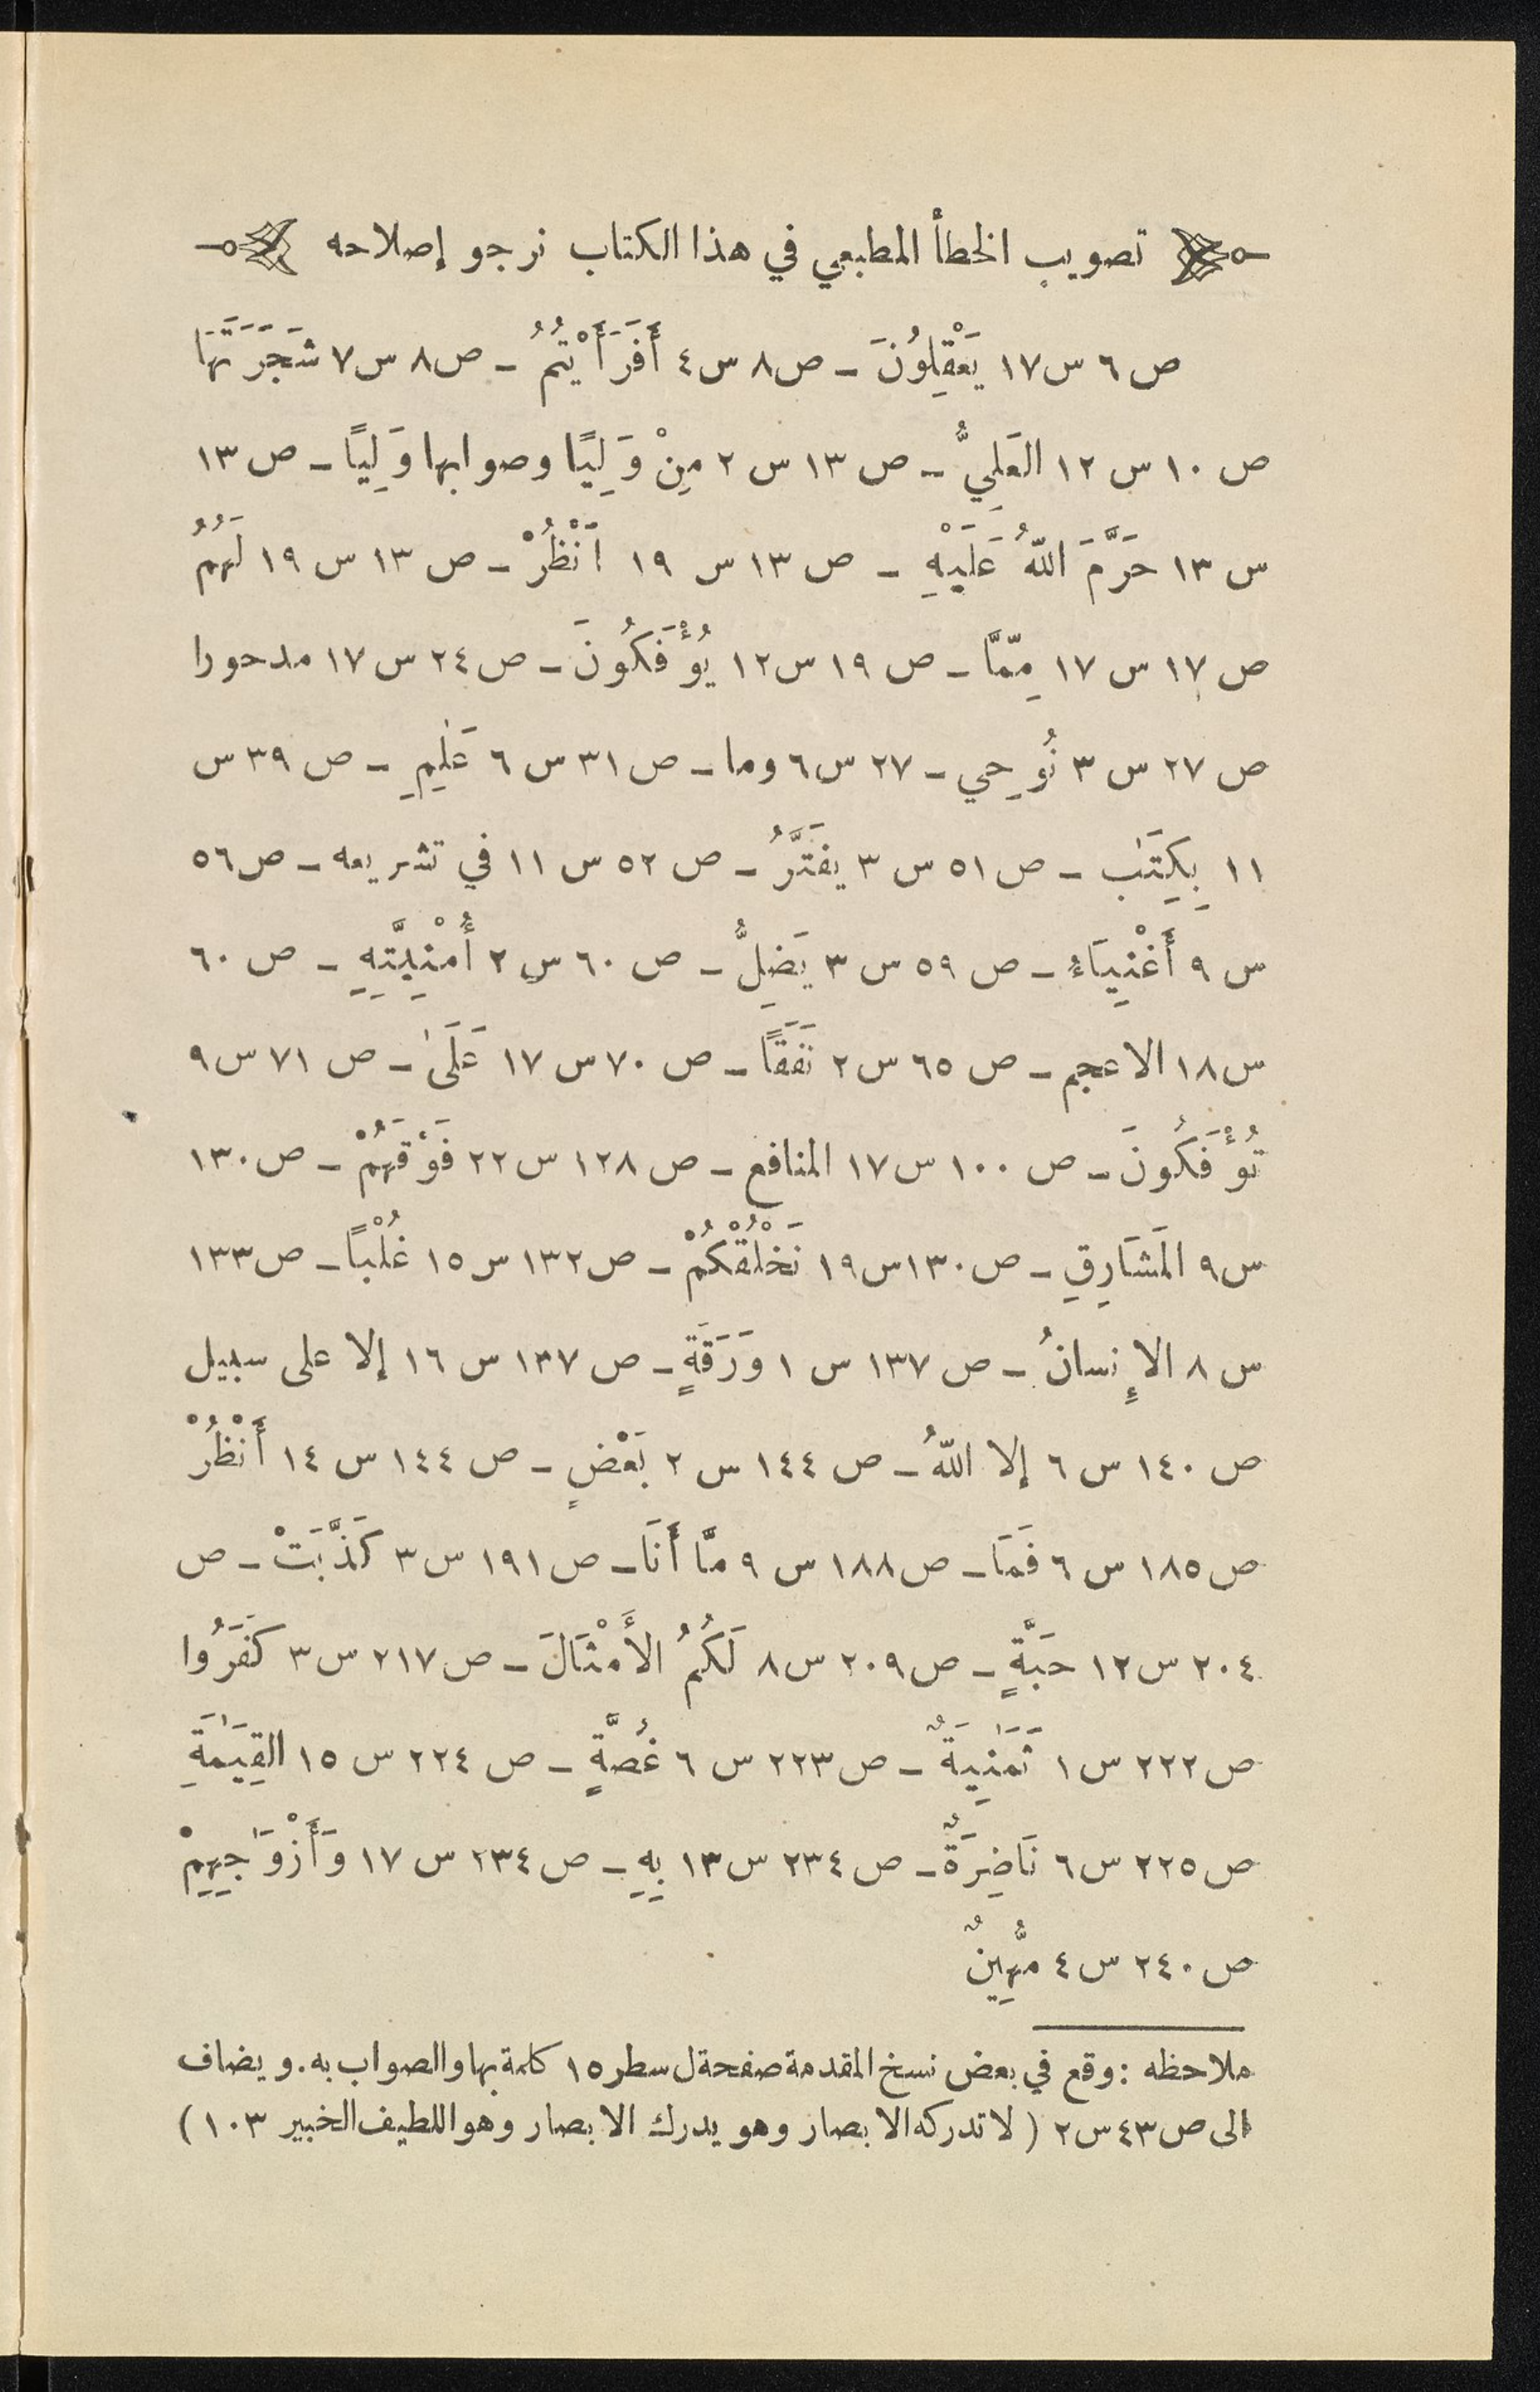 تصويب الخطأ المطبعي في هذا الكتاب نرجو إصلاحه
ص ٦ س ١٧ يَعْقِلُونَ ـ ص ٨ س ٤ أَفَرَأَيْتُمُ ـ ص ٨ س ٧ شَجَرَتَهَا
ص ١٠ س ١٢ العَلِيُّ ـ ص ١٣ س ٢ مِنْ وَلِيًا وصوابها وَلِيًا ـ ص ١٣
س ١٣ حَرَّمَ اللّهُ عَلَيْهِ ـ ص ١٣ س ١٩ اَنْظُرْ ـ ص ١٣ س ١٩ لَهُمُ
ص ١٧ س ١٧ مِّمَّا ـ ص ١٩ س ١٢ يُؤْفَكُونَ ـ ص ٢٤ س ١٧ مدحورا
ص ٢٧ س ٣ نُوحِي ـ ٢٧ س ٦ وما ـ ص ٣١ س ٦ عَلِٰمِ ـ ص ٣٩ س
١١ بِكِتَٰبٍ ـ ص ٥١ س ٣ يفَتَّرُ ـ ص ٥٢ س ١١ في تشريعه ـ ص ٥٦
س ٩ أَغْنِيَاءُ ـ ص ٥٩ س ٣ يَضِلُّ ـ ص ٦٠ س ٢ أُمْنِيَّتِهِ ـ ص ٦٠
س ١٨ الاعجم ـ ص ٦٥ س ٢ نَفَقًا ـ ص ٧٠ س ١٧ عَلَىٰ ـ ص ٧١ س ٩
تُؤْفَكُونَ ـ ص ١٠٠ س ١٧ المنافع ـ ص ١٢٨ س ٢٢ فَوْقَهُمْ ـ ص ١٣٠
س ٩ المَشَارِقِ ـ ص ١٣٠ س ١٩ نَخْلُقْكُمْ ـ ص ١٣٢ س ١٥ غُلْبًا ـ ص ١٣٣
س ٨ الإِنسانُ ـ ص ١٣٧ س ١ وَرَقَةٍ ـ ص ١٣٧ س ١٦ إلا على سبيل
ص ١٤٠ س ٦ إلا اللّهُ ـ ص ١٤٤ س ٢ بَعْضٍ ـ ص ١٤٤ س ١٤ أَنْظُرْ
ص ١٨٥ س ٦ فَمَا ـ ص ١٨٨ س ٩ مَّا أَنَا ـ ص ١٩١ س ٣ كَذَّبَتْ ـ ص
٢٠٤ س ١٢ حَبَّةٍ ـ ص ٢٠٩ س ٨ لَكُمُ الأَمْثَالَ ـ ص ٢١٧ س ٣ كَفَرُوا
ص ٢٢٢ س ١ ثَمَٰنِيَةٌ ـ ص ٢٢٣ س ٦ غُصَّةٍ ـ ص ٢٢٤ س ١٥ القِيَٰمَةِ
ص ٢٢٥ س ٦ نَاضِرَةٌ ـ ص ٢٣٤ س ١٣ بِهِ ـ ص ٢٣٤ س ١٧ وَأَزْوَٰجِهِمْ
ص ٢٤٠ س ٤ مُّهِينٌ
ملاحظه : وقع في بعض نسخ المقدمة صفحة ل سطر ١٥ كلمة بها والصواب به . ويضاف
الى ص ٤٣ س ٢ ( لا تدركه الابصار وهو يدرك الابصار وهو اللطيف الخبير ١٠٣ )